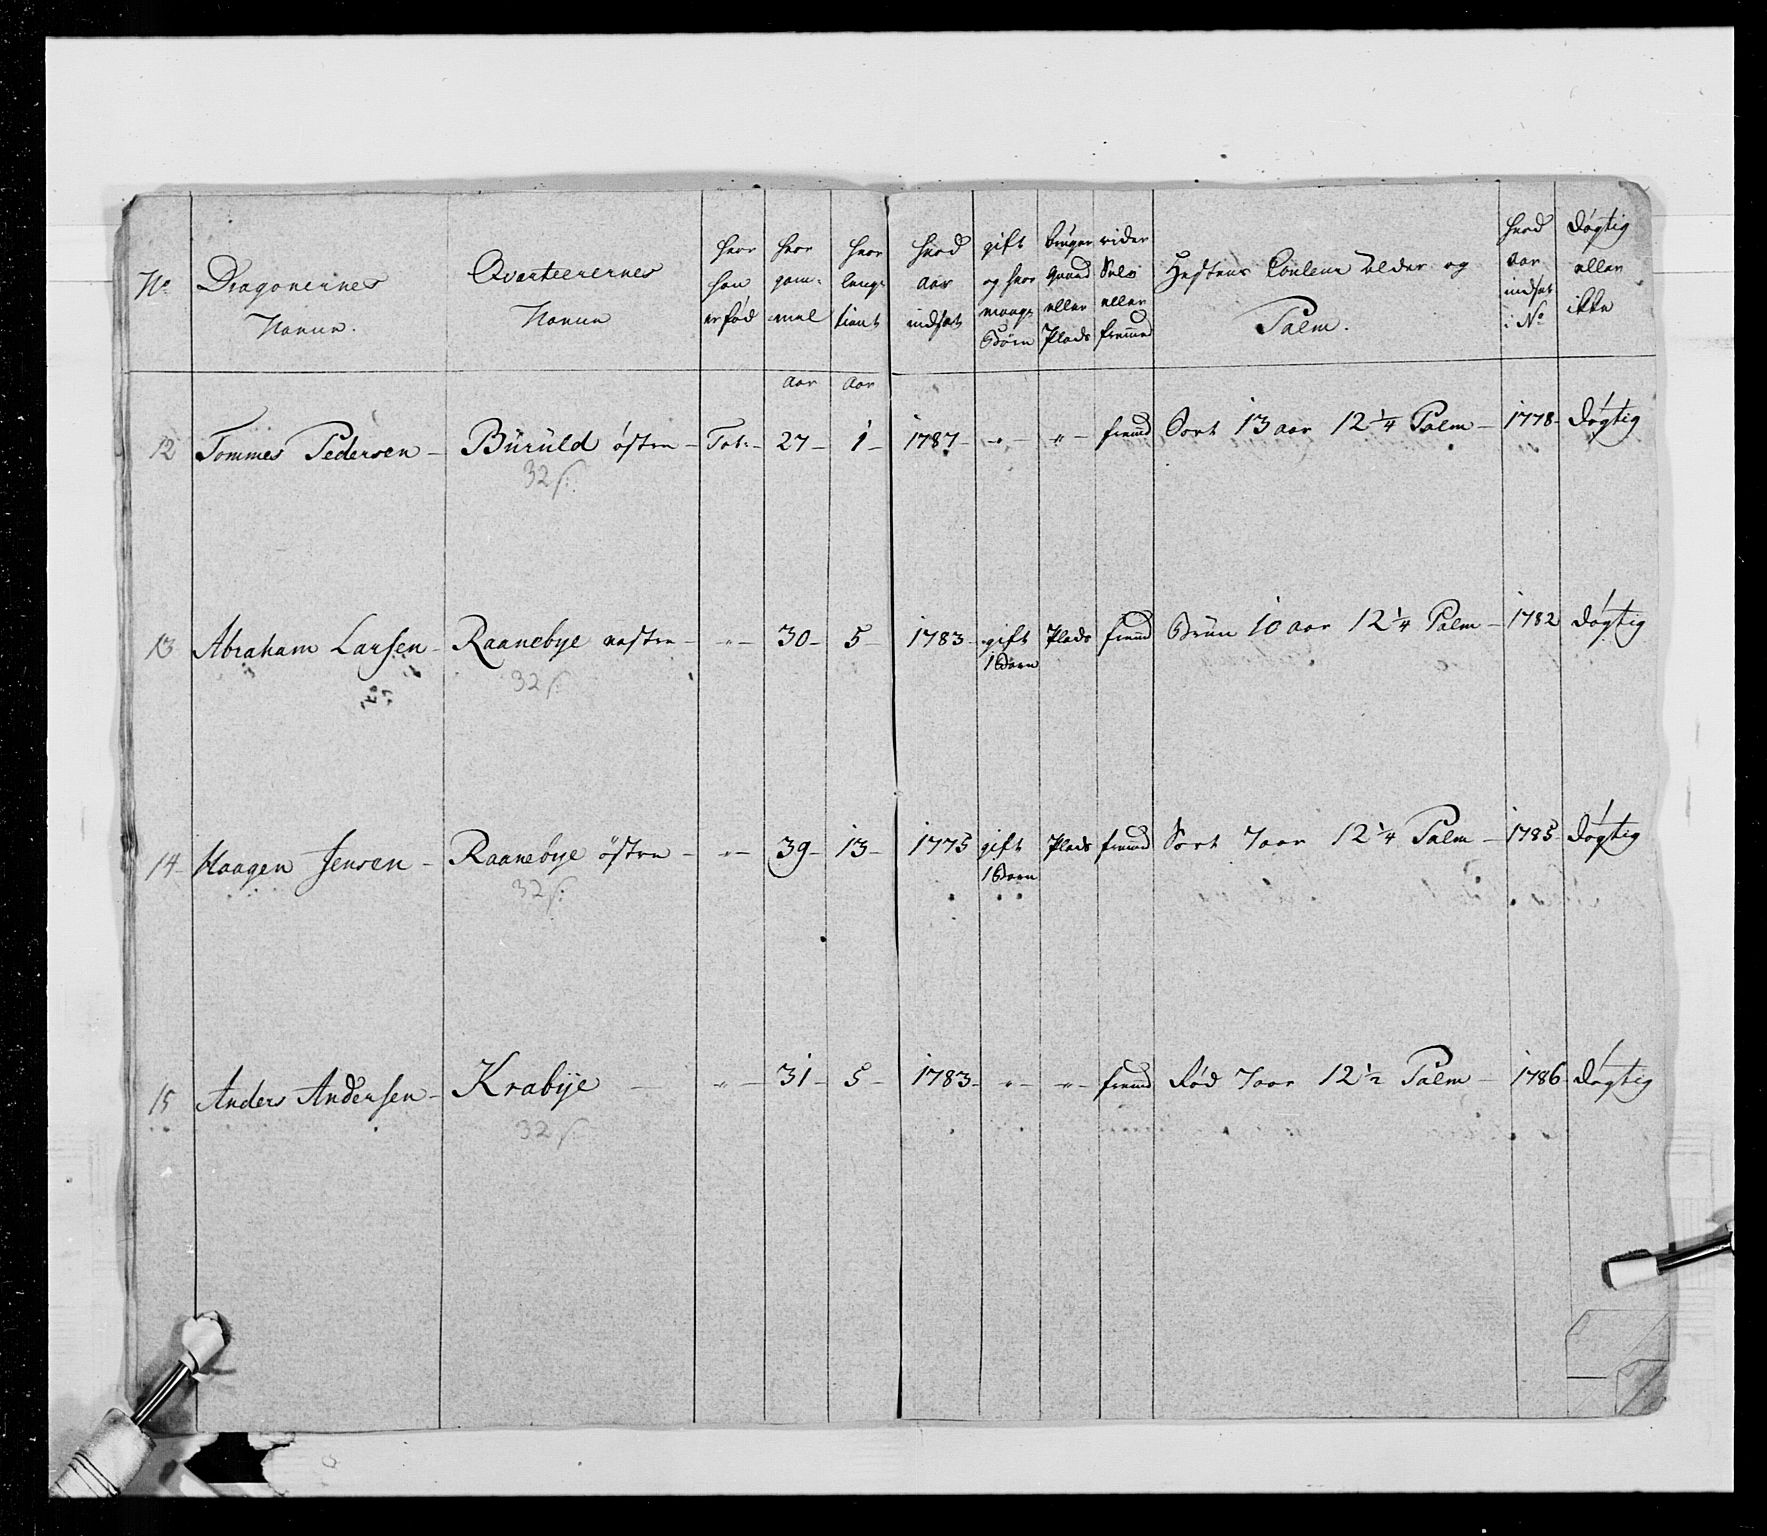 No | Dragonernes Navne. | Qvarteerernes Navne | hvor han er fød | hvor gam- mel | hvor lenge tient | hvad aar indsat | gift og hvor mange Børn | bruger gaard eller Plads | rider Selv eller fremed | Hestens Couleur Alder og Palm. | hvad aar indsat i No | døgtig eller ikke
aar | aar
12 | Tommes Pedersen - | Buruld østre - | Tot: - | 27 - | 1 - | 1787 - | - " - | " - | fremd | Sort 13 aar 12 1/4 Palm - | 1778 - | døgtig
32 s:
13 | Abraham Larsen - | Raanebye vestre - | - " - | 30 - | 5 - | 1783 - | gift | Plads | fremd | Brun 10 aar 12 1/4 Palm - | 1782 | døgtig
32 s: | 1 Barn
14 - | Haagen Jensen - | Raanebye østre - | - " - | 39 - | 13 - | 1775 | gift | Plads | fremd | Sort 7 aar 12 1/4 Palm - | 1785 - | døgtig
32 s: | 1 Barn
15 | Anders Andersen - | Krabye - | - " - | 31 - | 5 - | 1783 - | " - | " - | fremd | Rød 7 aar 12 1/2 Palm - | 1786 - | døgtig
32 s: